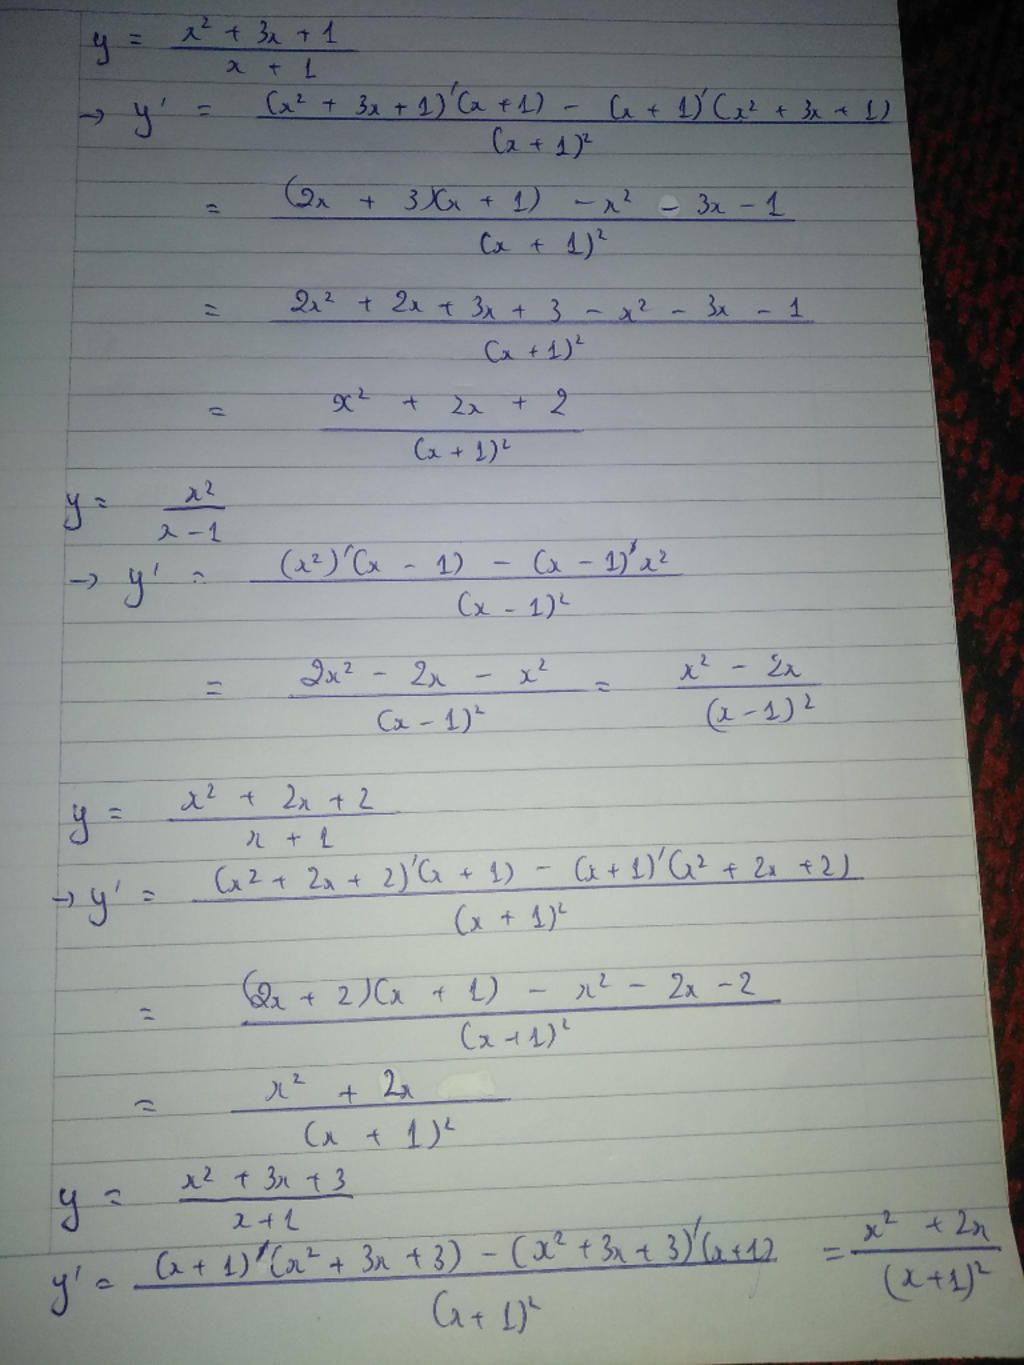 y = (x² + 3x + 1) / (x + 1)
→ y' = ((x² + 3x + 1)'(x + 1) - (x + 1)'(x² + 3x + 1)) / (x + 1)²
= ((2x + 3)(x + 1) - x² - 3x - 1) / (x + 1)²
= (2x² + 2x + 3x + 3 - x² - 3x - 1) / (x + 1)²
= (x² + 2x + 2) / (x + 1)²
y = x² / (x - 1)
→ y' = ((x²)'(x - 1) - (x - 1)'x²) / (x - 1)²
= (2x² - 2x - x²) / (x - 1)² = (x² - 2x) / (x - 1)²
y = (x² + 2x + 2) / (x + 1)
→ y' = ((x² + 2x + 2)'(x + 1) - (x + 1)'(x² + 2x + 2)) / (x + 1)²
= ((2x + 2)(x + 1) - x² - 2x - 2) / (x + 1)²
= (x² + 2x) / (x + 1)²
y = (x² + 3x + 3) / (x + 1)
y' = ((x + 1)'(x² + 3x + 3) - (x² + 3x + 3)'(x + 1)) / (x + 1)² = (x² + 2x) / (x + 1)²